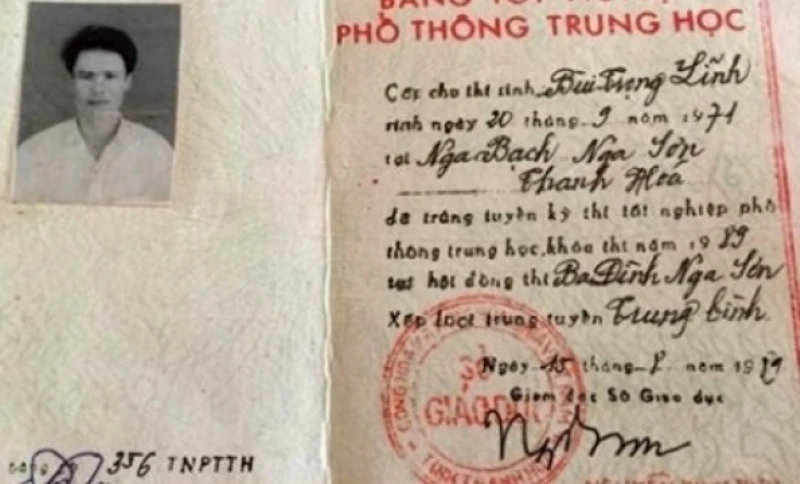 BẰNG TỐT
PHỔ THÔNG TRUNG HỌC
Cấp cho thí sinh Bùi Trọng Lĩnh
sinh ngày 20 tháng 9 năm 1971
tại Nga Bạch Nga Sơn
Thanh Hoá
đã trúng tuyển kỳ thi tốt nghiệp phổ
thông trung học, khóa thi năm 1989
tại hội đồng thi Ba Đình Nga Sơn
Xếp loại trúng tuyển Trung bình
Ngày 15 tháng 8 năm 1989
Giám đốc Sở Giáo dục
SỞ
GIÁO DỤC
356 TNPTTH